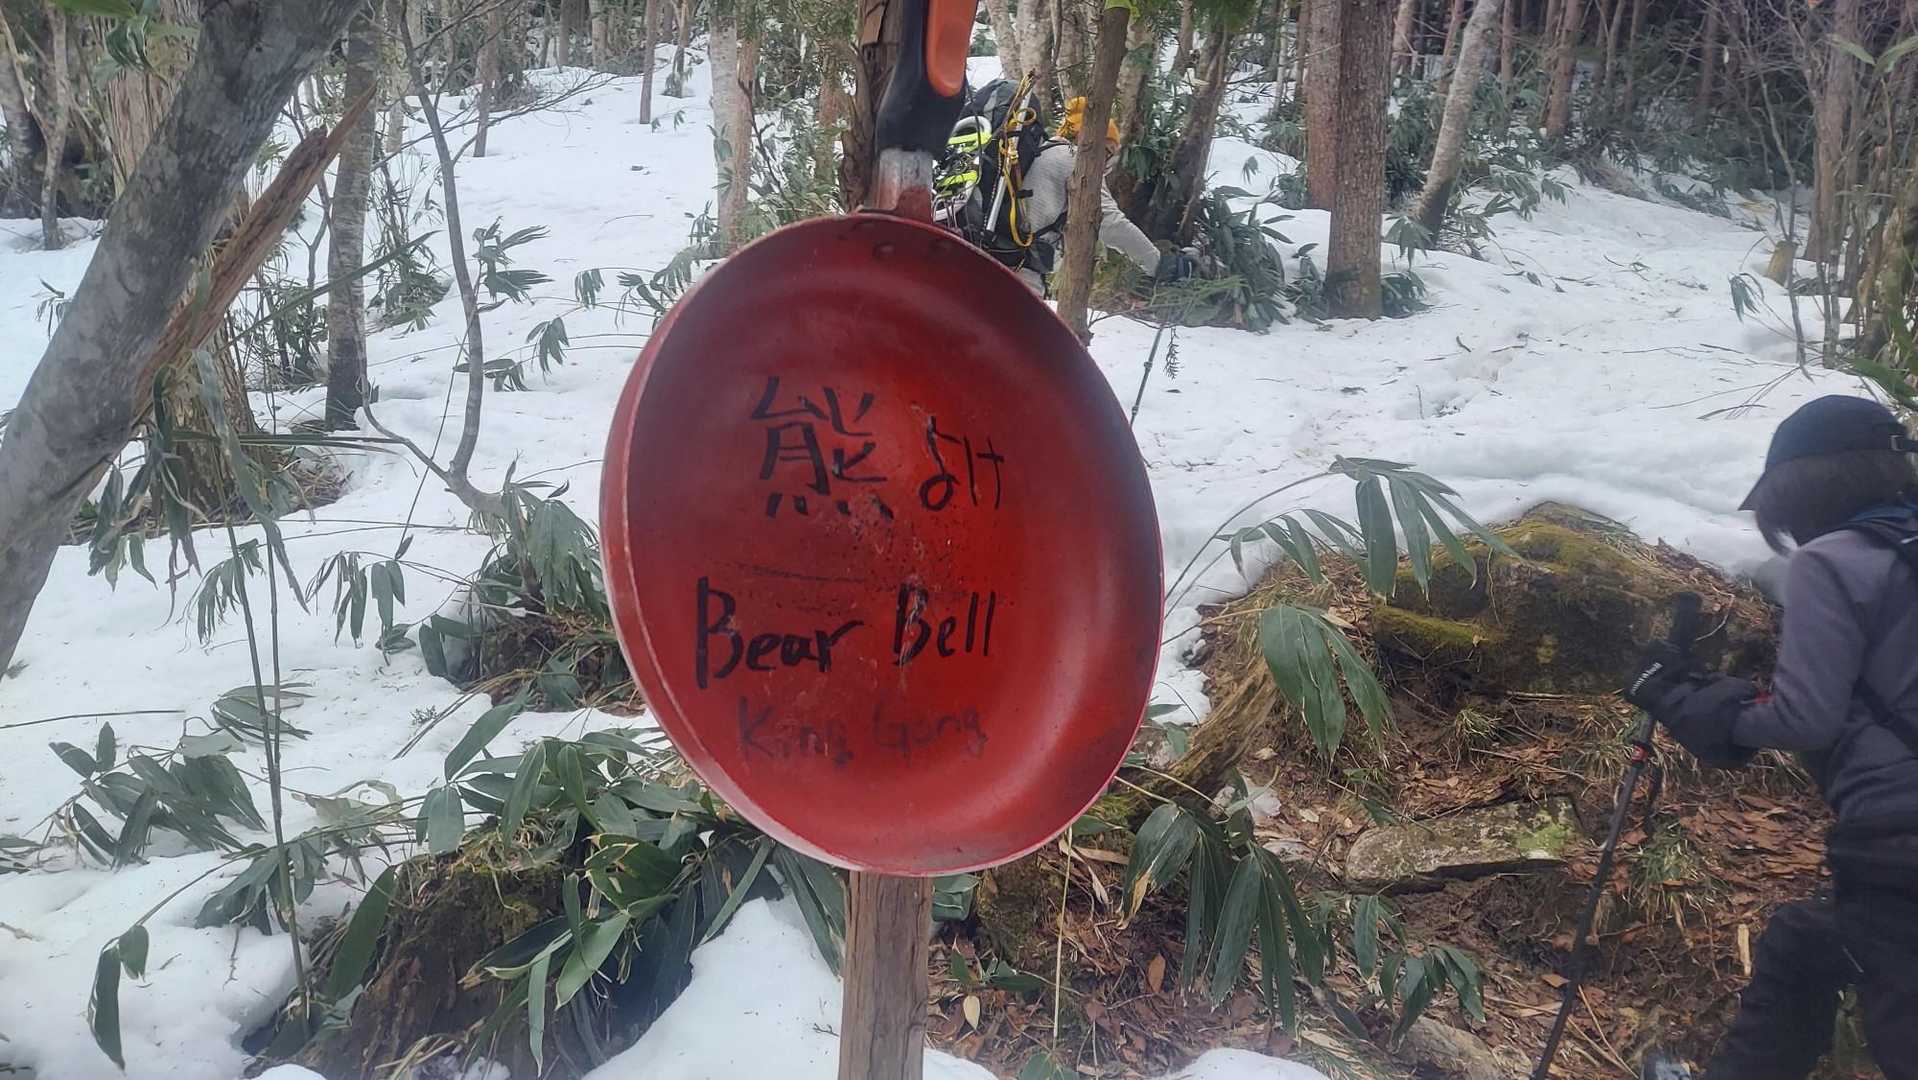 熊よけ
Bear Bell
King Gong